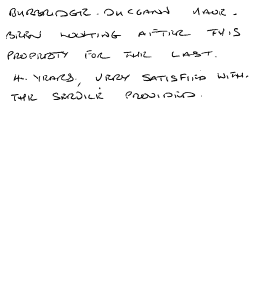 BURBRIDGE. DUCGANN HAVE.
BEEN LOOKING AFTER THIS
PROPERTY FOR THE LAST.
4. YEARS, VERY SATISFIED WITH.
THE SERVICE PROVIDED.